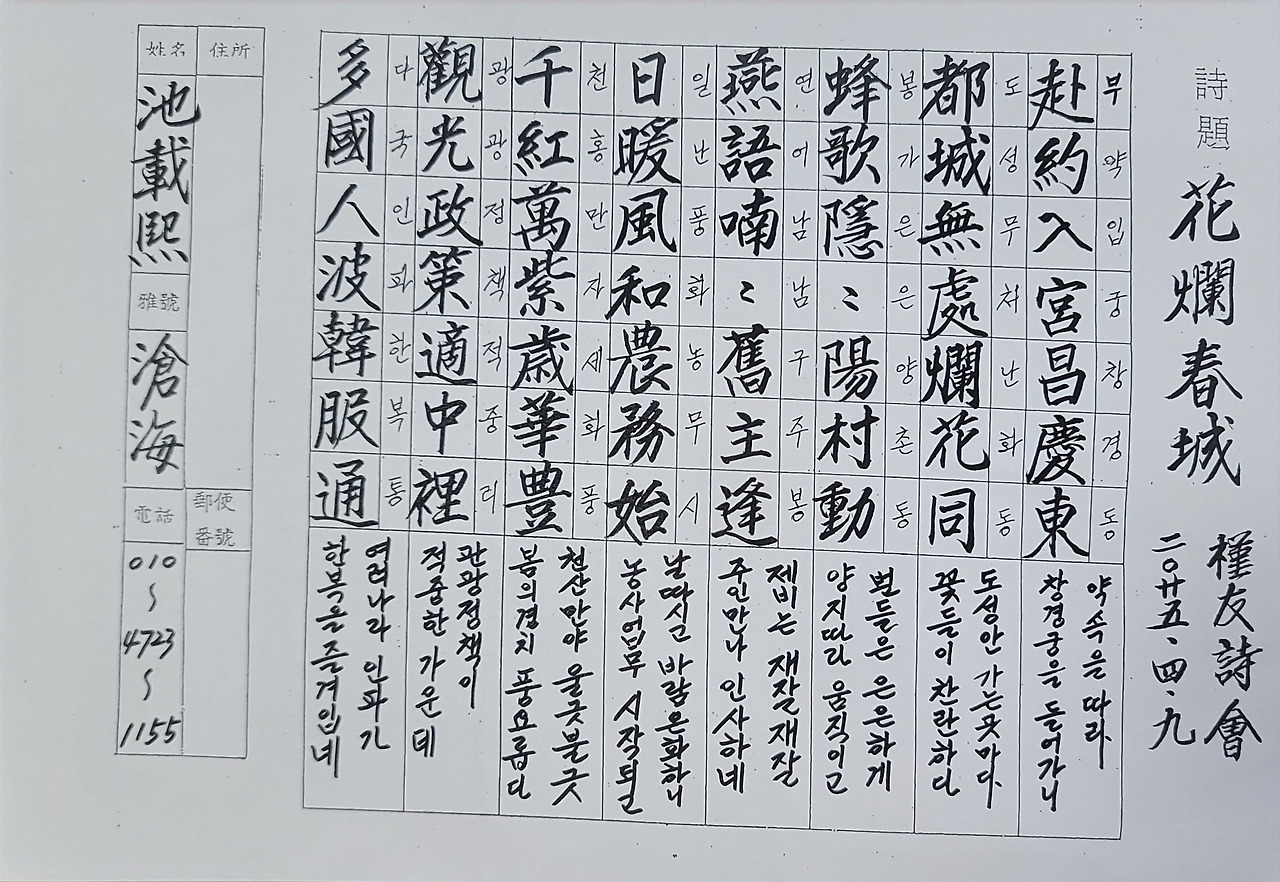 詩題 花爛春城
槿友詩會
二〇廿五、四、九
赴約入宮昌慶東
부약입궁창경동
약속은 따라
창경궁을 들어가니
都城無處爛花同
도성무처난화동
도성안 가는곳마다
꽃들이 찬란하다
蜂歌隱〻陽村動
봉가은은양촌동
벌들은 은은하게
양지따라 움직이고
燕語喃〻舊主逢
연어남남구주봉
제비는 재잘재잘
주인만나 인사하네
日暖風和農務始
일난풍화농무시
날따시고 바람온화하니
농사업무 시작되고
千紅萬紫歲華豊
천홍만자세화풍
천산만야 울긋불긋
봄의경치 풍요롭다
觀光政策適中裡
광광정책적중리
관광정책이
적중한 가운데
多國人波韓服通
다국인파한복통
여러나라 인파가
한복을 즐겨입네
住所
郵便番號
姓名 池載熙
雅號 滄海
電話 010~4723~1155